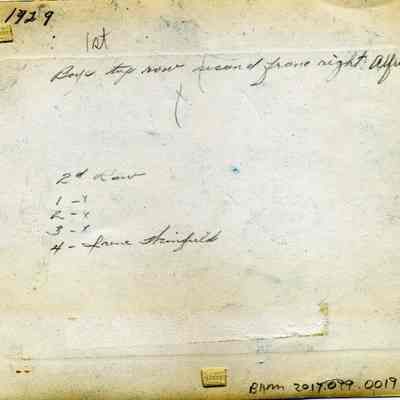 1929
1st
Boys top row second from right. Alfre
2d Row
1 - x
2 - x
3 - x
4 - Irene Steinfield
BHM 2017.099.0019